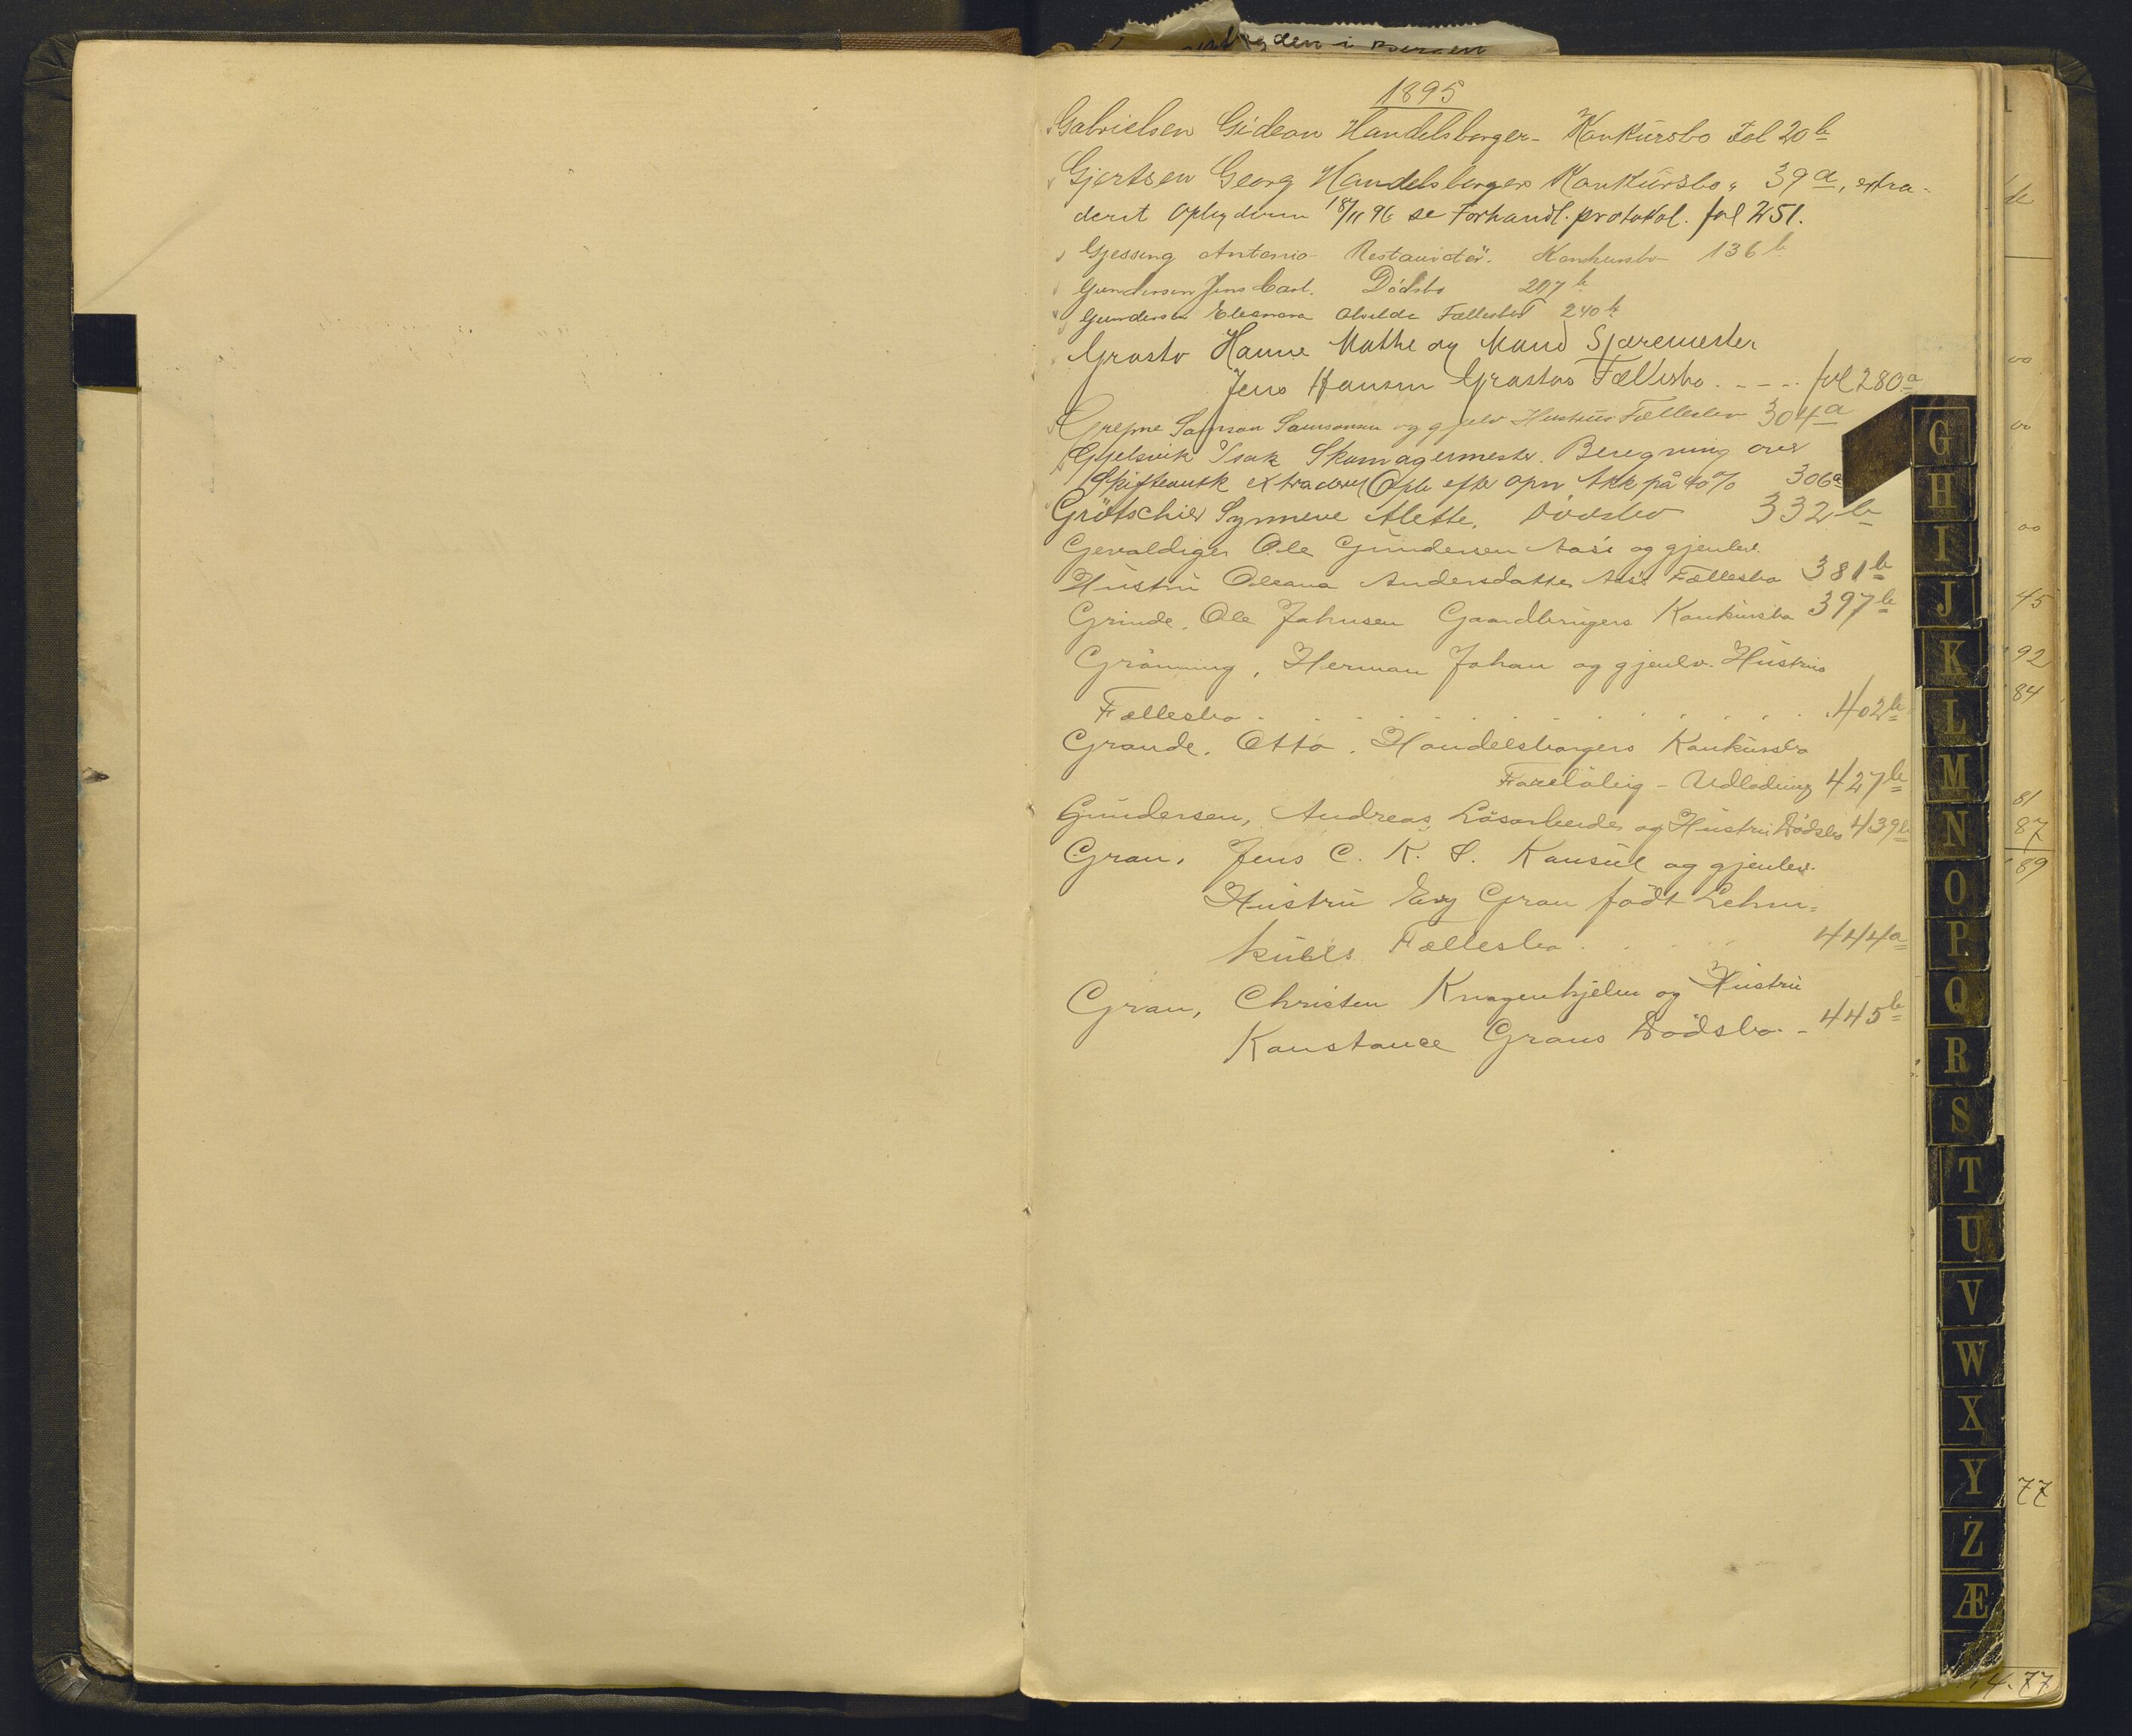 den i Bergen
1895
Gabrielsen Gideon Handelsborger- Konkursbo Fol 20 b
Gjertsen Georg Handelsborgers Konkursbo " 39 a, extra-
derit 18/11 96 se Forhandl. protokol. fol 251.
Gjessing Antonio Restauratör. Konkursbo 136 b
Gundersen Jens Carl. Dödsbo 207 b
Gundersen Eleonora Fællesbo 240 b
Grasto Hanne Mathe og Mand
Jens Hansen Grastos Fællesbo . - - - . fol 280 a
Samson Samsonsen og gjenlev Hustrus Fællesbo 304 a
Gjelsvik Isak Skomagermester. Beregning over
efter på 40% 306 a
Grötschier Synneve Alette, Dödsbo 332 b
Gevaldiger Ole Gundersen Aase og gjenlev.
Hustru Oleana Andersdatter Fællesbo 381 b
Grinde, Ole Johnsen Gaardbrugers Konkursbo 397 b
Grönning, Herman Johan og gjenlev. Hustrus
Fællesbo . . . . . . . . . . 402 b
Grande. Otto. Handelsborgers Konkursbo
Forelöbig - Udlodning 427 b
Gundersen, Andreas, Lösarbeider og Hustru Dödsbo 439 b
Gran, Jens C. K. S. Konsul og gjenlev.
Hustru Gran født Lehm=
kuhls Fællesbo . . . . 444 a
Gran, Christen Knagenhjelm og Hustru
Konstance Grans Dödsbo. - 445 b
G
H
I
J
K
L
M
N
O
P
Q
R
S
T
U
V
W
X
Y
Z
Æ
00
00
00
45
92
84
81
87
89
77
14.77